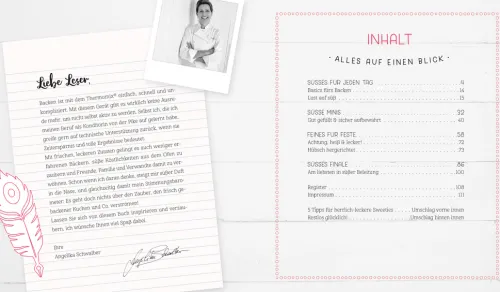 Liebe Leser,
Backen ist mit dem Thermomix® einfach, schnell und un-
kompliziert. Mit diesem Gerät gibt es wirklich keine Ausre-
de mehr, um nicht selbst aktiv zu werden. Selbst ich, die ich
meinen Beruf als Konditorin von der Pike auf gelernt habe,
greife gern auf technische Unterstützung zurück, wenn sie
Zeitersparnis und tolle Ergebnisse bedeutet.
Mit frischen, leckeren Zutaten gelingt es auch weniger er-
fahrenen Bäckern, süße Köstlichkeiten aus dem Ofen zu
zaubern und Freunde, Familie und Verwandte damit zu ver-
wöhnen. Schon wenn ich daran denke, steigt mir süßer Duft
in die Nase, und gleichzeitig damit mein Stimmungsbaro-
meter: Es geht doch nichts über den Zauber, den frisch ge-
backener Kuchen und Co. verströmen!
Lassen Sie sich von diesem Buch inspirieren und verzau-
bern, ich wünsche Ihnen viel Spaß dabei.
Ihre
Angelika Schwalber
INHALT
· ALLES AUF EINEN BLICK ·
SÜSSES FÜR JEDEN TAG 4
Basics fürs Backen 14
Lust auf süß 15
SÜSSE MINIS 32
Gut gefüllt & sicher aufbewahrt 40
FEINES FÜR FESTE 58
Achtung, heiß & lecker! 72
Hübsch hergerichtet 73
SÜSSES FINALE 86
Am liebsten in süßer Begleitung 100
Register 108
Impressum 111
5 Tipps für herrlich-leckere Sweeties Umschlag vorne innen
Restlos glücklich! Umschlag hinten innen